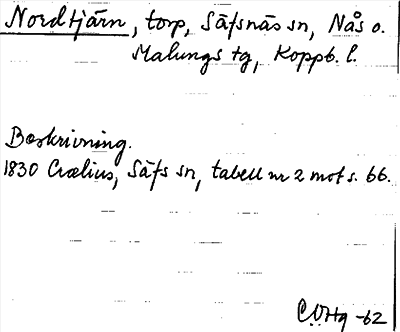 Nordtjärn, torp, Säfsnäs sn, Nås o.
Malungs tg, Koppb. l.
Beskrivning.
1830 Crælius, Säfs sn, tabell nr 2 mot s. 66.
-62